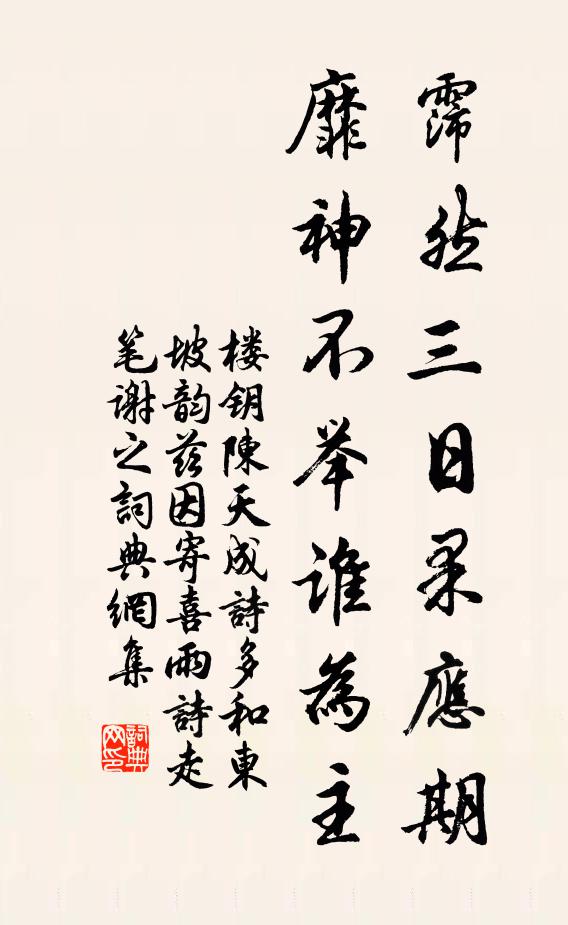 霈然三日果應期
靡神不举誰為主
楼钥陳天成詩多和東
坡韵兹因寄喜雨詩走
笔谢之詞典網集
詞典
网印